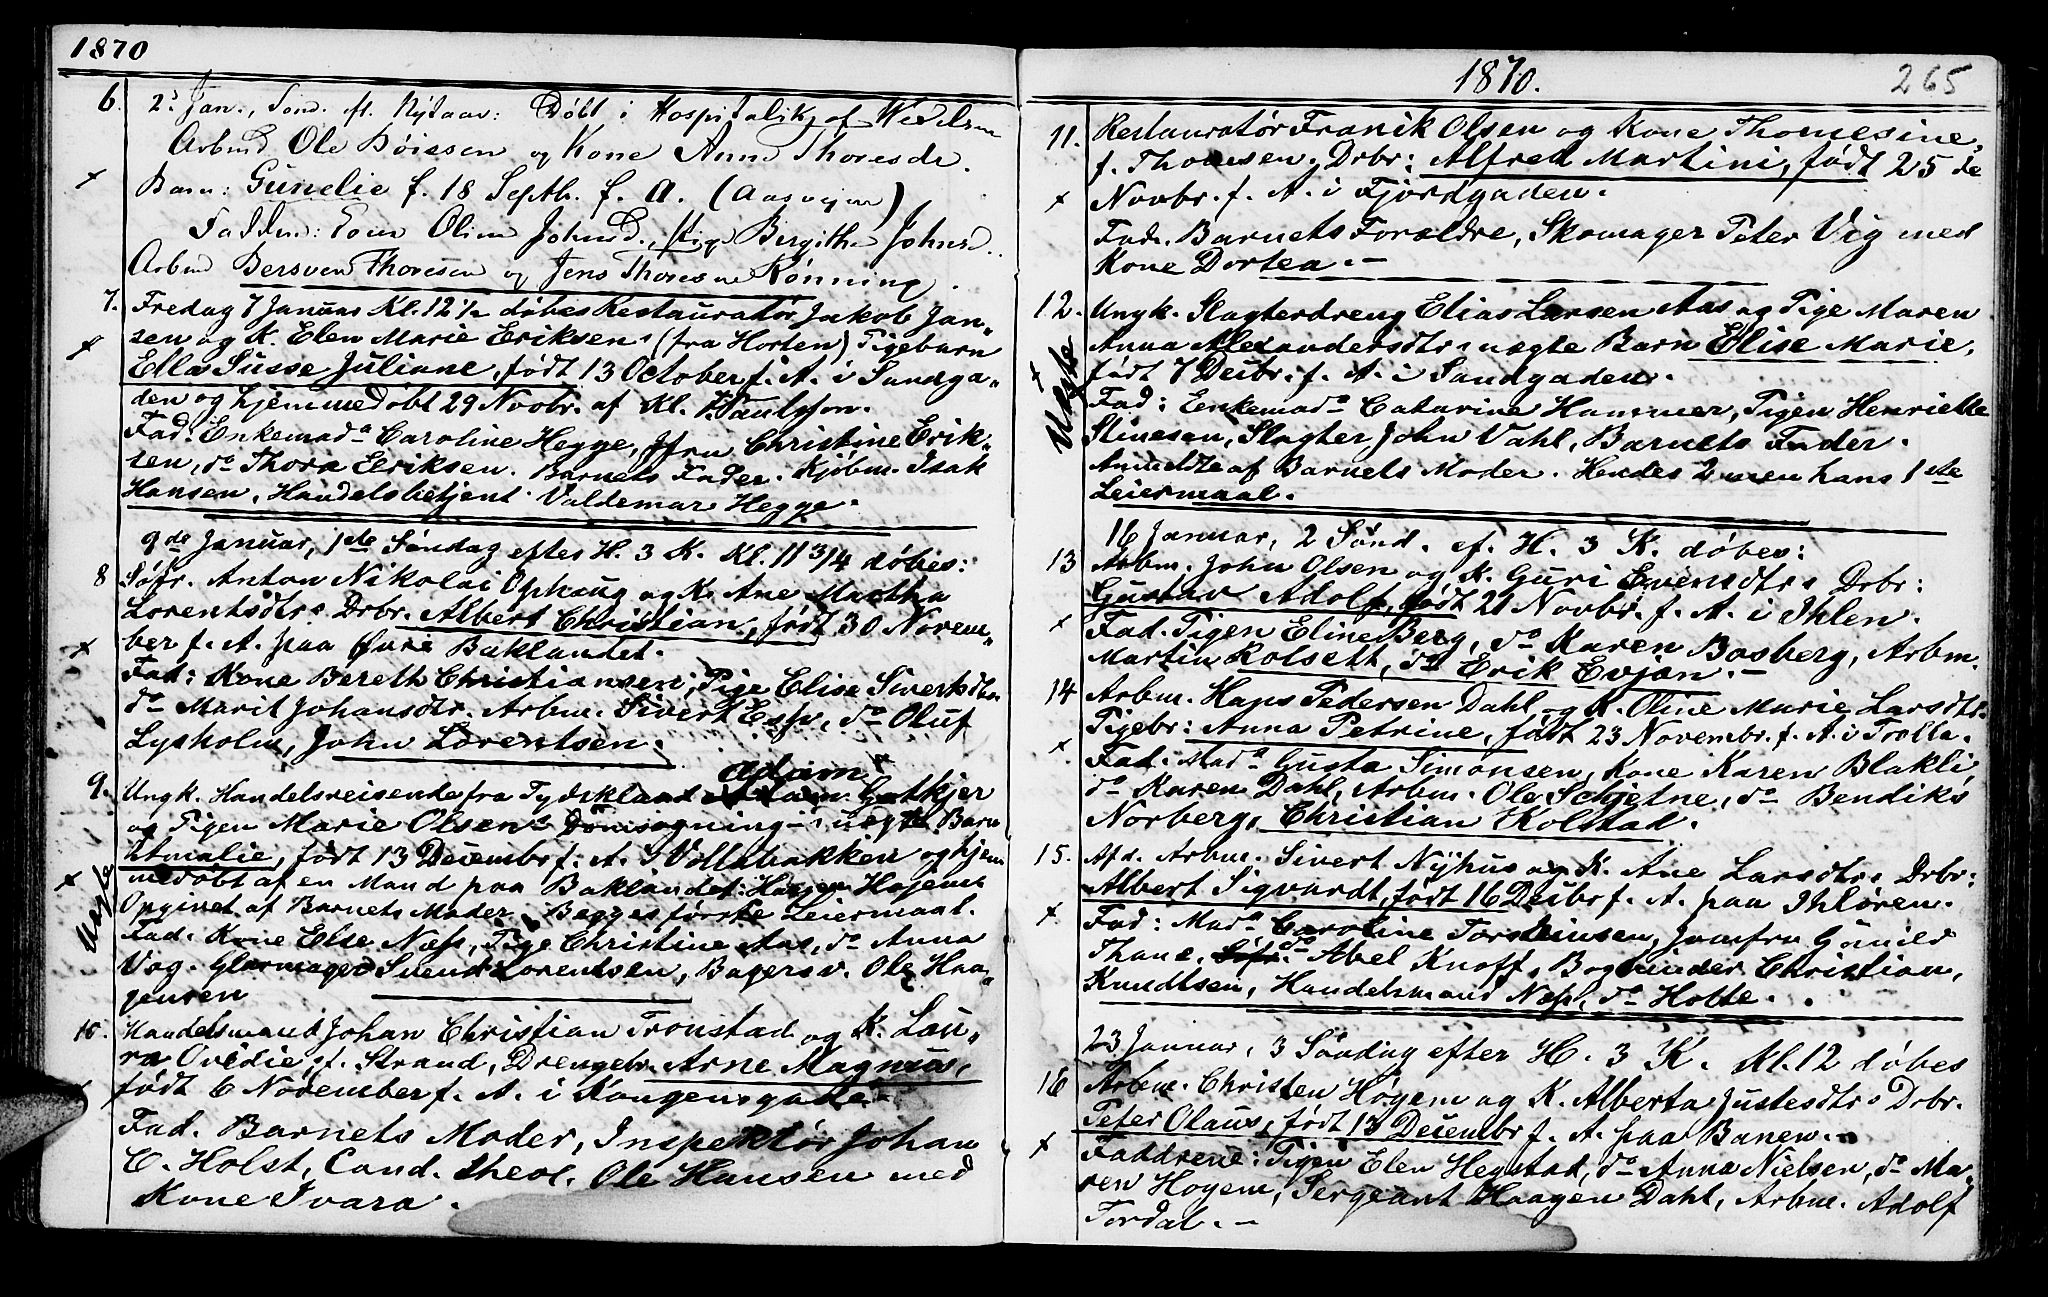 1870
6. 2. Jan., Sønd. eft. Nytaar: Døbt i Hospitalsk. af Wexelsen
Arbmd Ole Böiesen og Kone Anne Thoresdr.
Barn: Gunelie f. 18 Septb. f. A. (Aasvejen)
Faddere: Kone Oline Johnsd., Pige Bergithe Johnsd.
Arbmd Bersven Thoresen og Jens Thoresen Rönning.
7. Fredag 7 Januar Kl. 12 1/2 döbes Restauratör Jakob Jan„
sen og K. Elen Marie Eriksens (fra Horten) Pigebarn
Ella Susse Juliane, födt 13 October f. A. i Sandga„
den og hjemmedöbt 29 Novbr. af Kl. Paulsson.
Fad. Enkemada Caroline Hegge, Jfru Christine Erik„
sen, do Thora Eriksen. Barnets Fader. Kjöbm. Isak
Hansen, Handelsbetjent Valdemar Hegge.
9de Januar, 1ste Söndag efter H. 3 K. Kl. 11 3/4 döbes:
8 Söfr. Anton Nikolai Ophaug og K. Ane Martha
Lorentsdtrs Drbr. Albert Christian, födt 30 Novem„
ber f. A. paa Øvre Baklandet.
Fad: Kone Bereth Christiansen, Pige Elise Sivertsdtr.
do Marit Johansdtr. Arbm. Sivert Esp, do Oluf
Lysholm, John Lorentsen.
Adam
9. Ungk. Handelsreisende fra Tydskland Adam Gatkjer
og Pigen Marie Olsens Domsogning uægte Barn
Amalie, födt 13 Decembr f. A. i Vollabakken og hjem
medöbt af en Mand paa Baklandet: Hasjen Højem.
Opgivet af Barnets Moder. Begges förste Leiermaal.
Uægte
Fad. Kone Else Næss, Pige Christine Aas, do Anna
Vog. Glarmager Svend Lorentsen, Bagersv. Ole Haa„
gensen
10. Handelsmand Johan Christian Tronstad og K. Lau„
ra Ovidie, f. Strand, Drengebr. Arne Magnus,
födt 6 November f. A. i Kongensgade
Fad. Barnets Moder, Inspektör Johan
C. Holst, Cand. theol. Ole Hansen med
Kone Ivara.
1870. 265
11. Restauratör Franik Olsen og Kone Thomesine,
f. Thomesen. Drbr: Alfred Martini, födt 25de
Novbr. f. A. i Fjordgaden.
Fad. Barnets Foraldre, Skomager Peter Vig med
Kone Dortea.
12. Ungk. Slagterdreng Elias Larsen Aas og Pige Maren
Anna Alexandersdtrs uægte Barn Elise Marie,
födt 7 Decbr. f. A. i Sandgaden.
Uægte
Fad: Enkemada Catarine Hansner, Pigen Henriette
Stinesen, Slagter John Vahl, Barnets Fader.
Anmeldte af Barnets Moder. Hendes 2 men hans 1ste
Leiermaal.
16 Januar, 2 Sönd. ef. H. 3 K. döbes:
13 Arbm. John Olsen og K. Guri Evensdtrs Drbr:
Gustav Adolf, födt 21 Novbr. f. A. i Ihlen.
Fad. Pigen Eline Berg, do Karen Bosberg, Arbm.
Martin Rolsett, do Erik Evjan.
14 Arbm. Hans Pedersen Dahl og K. Oline Marie Larsdtrs
Pigebr: Anna Petrine, födt 23 Novembr. f. A. i Trolla.
Fad. Mada Gusta Simonsen, Kone Karen Blakli
do Karen Dahl, Arbm. Ole Schjetne, do Bendiks
Norberg, Christian Kolstad.
15. Afd. Arbm. Sivert Nyhus og K. Ane Larsdtrs Drbr:
Albert Sigvardt, födt 16 Decbr f. A. paa Ihlören.
Fad: Mada Caroline Torsteinsen, Jomfru Gunild
Thane, do Abel Knoff, Bogbinder Christian
Knudtsen, Handelsmand Næss, do Holte.
23 Januar, 3 Söndag efter H. 3 K. Kl. 12 döbes
16 Arbm. Christen Högem og K. Alberta Justesdtrs Drbr.
Peter Olaus, födt 13 Decembr f. A. paa Banen.
Faddrene: Pigen Elen Hegstad, do Anna Nielsen, do Ma„
ren Hogem, Sergeant Haagen Dahl, Arbm. Adolf
Tordal.